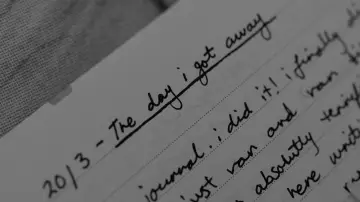 2013 - The day i got away
journal. i did it! i finally
just ran and ran
absolutly
here